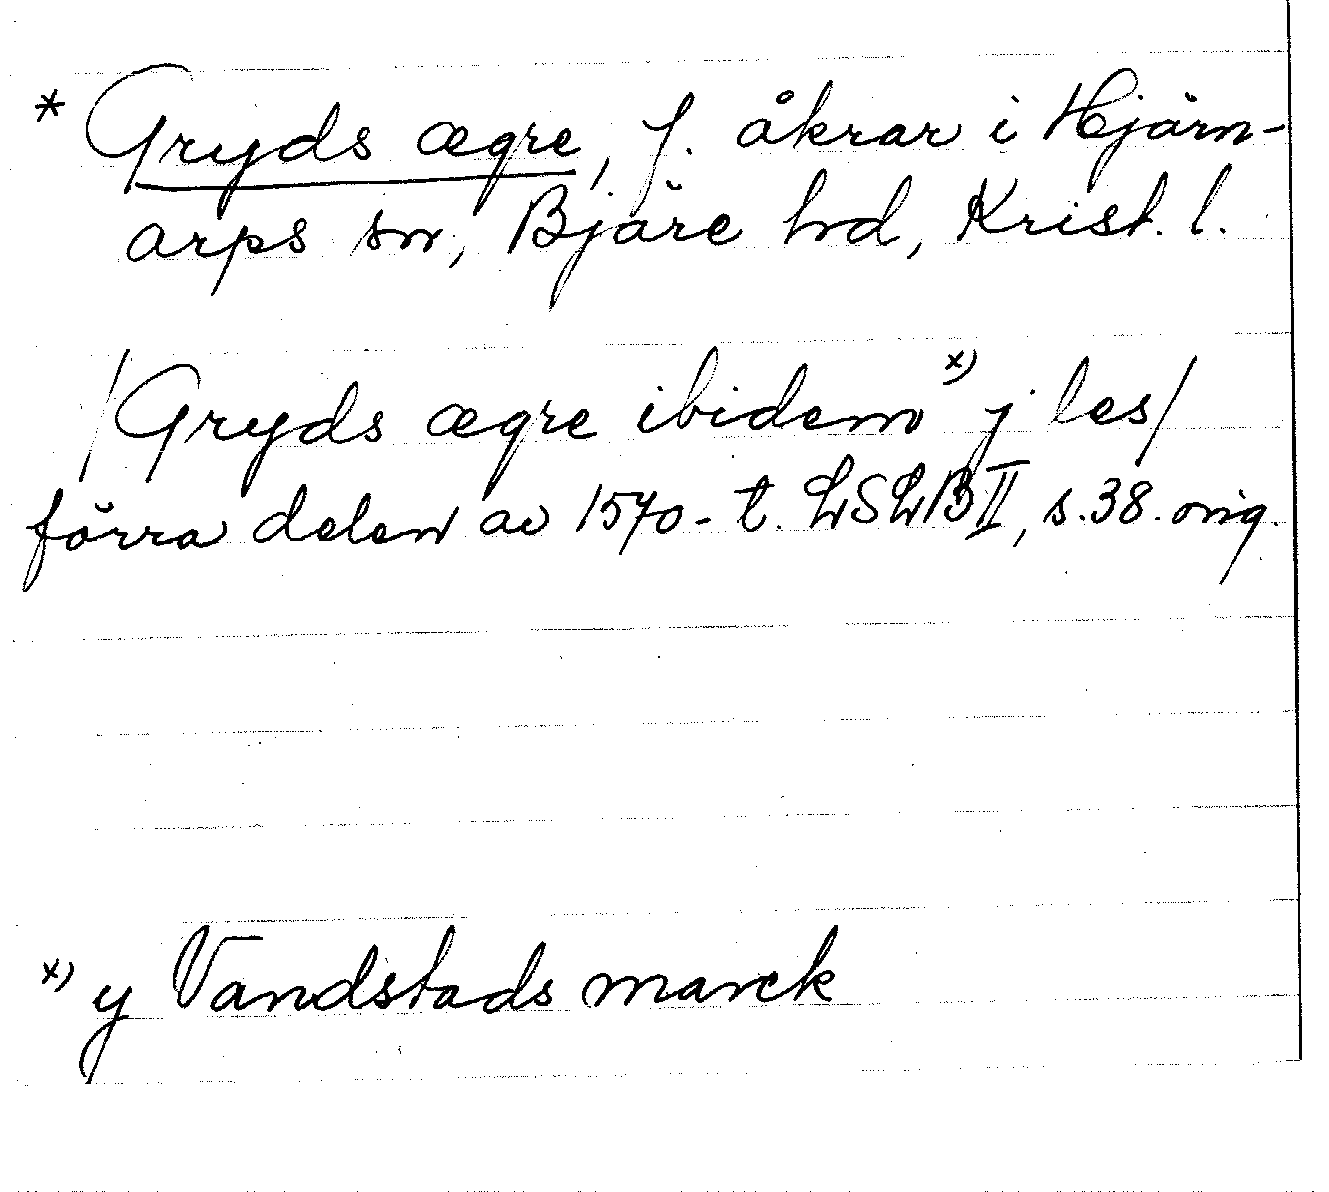 * Gryds ægre, f. åkrar i Hjärn-
arps sn, Bjäre hd, Krist. l.
/Gryds ægre ibidem x) j les/
förra delen av 1570-t. LSLB II, s. 38. orig.
x) y Vandstads marck